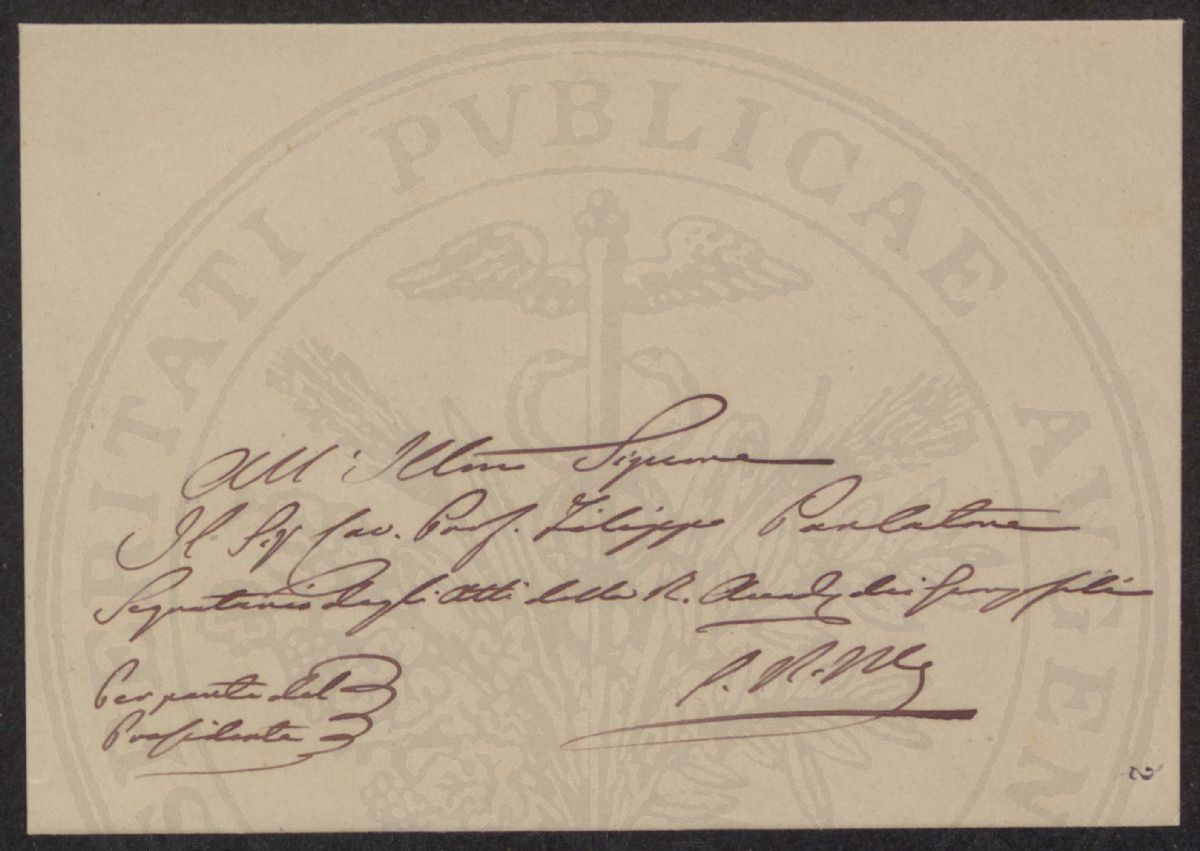 PROSPERITATI PVBLICAE AVGEN
All' Illmo Signore
Il Sig Cav. Prof. Filippo Parlatore
Segretario degli Atti della R. Accad. dei Georgofili
S. R. M.
Per parte del
Presidente
2